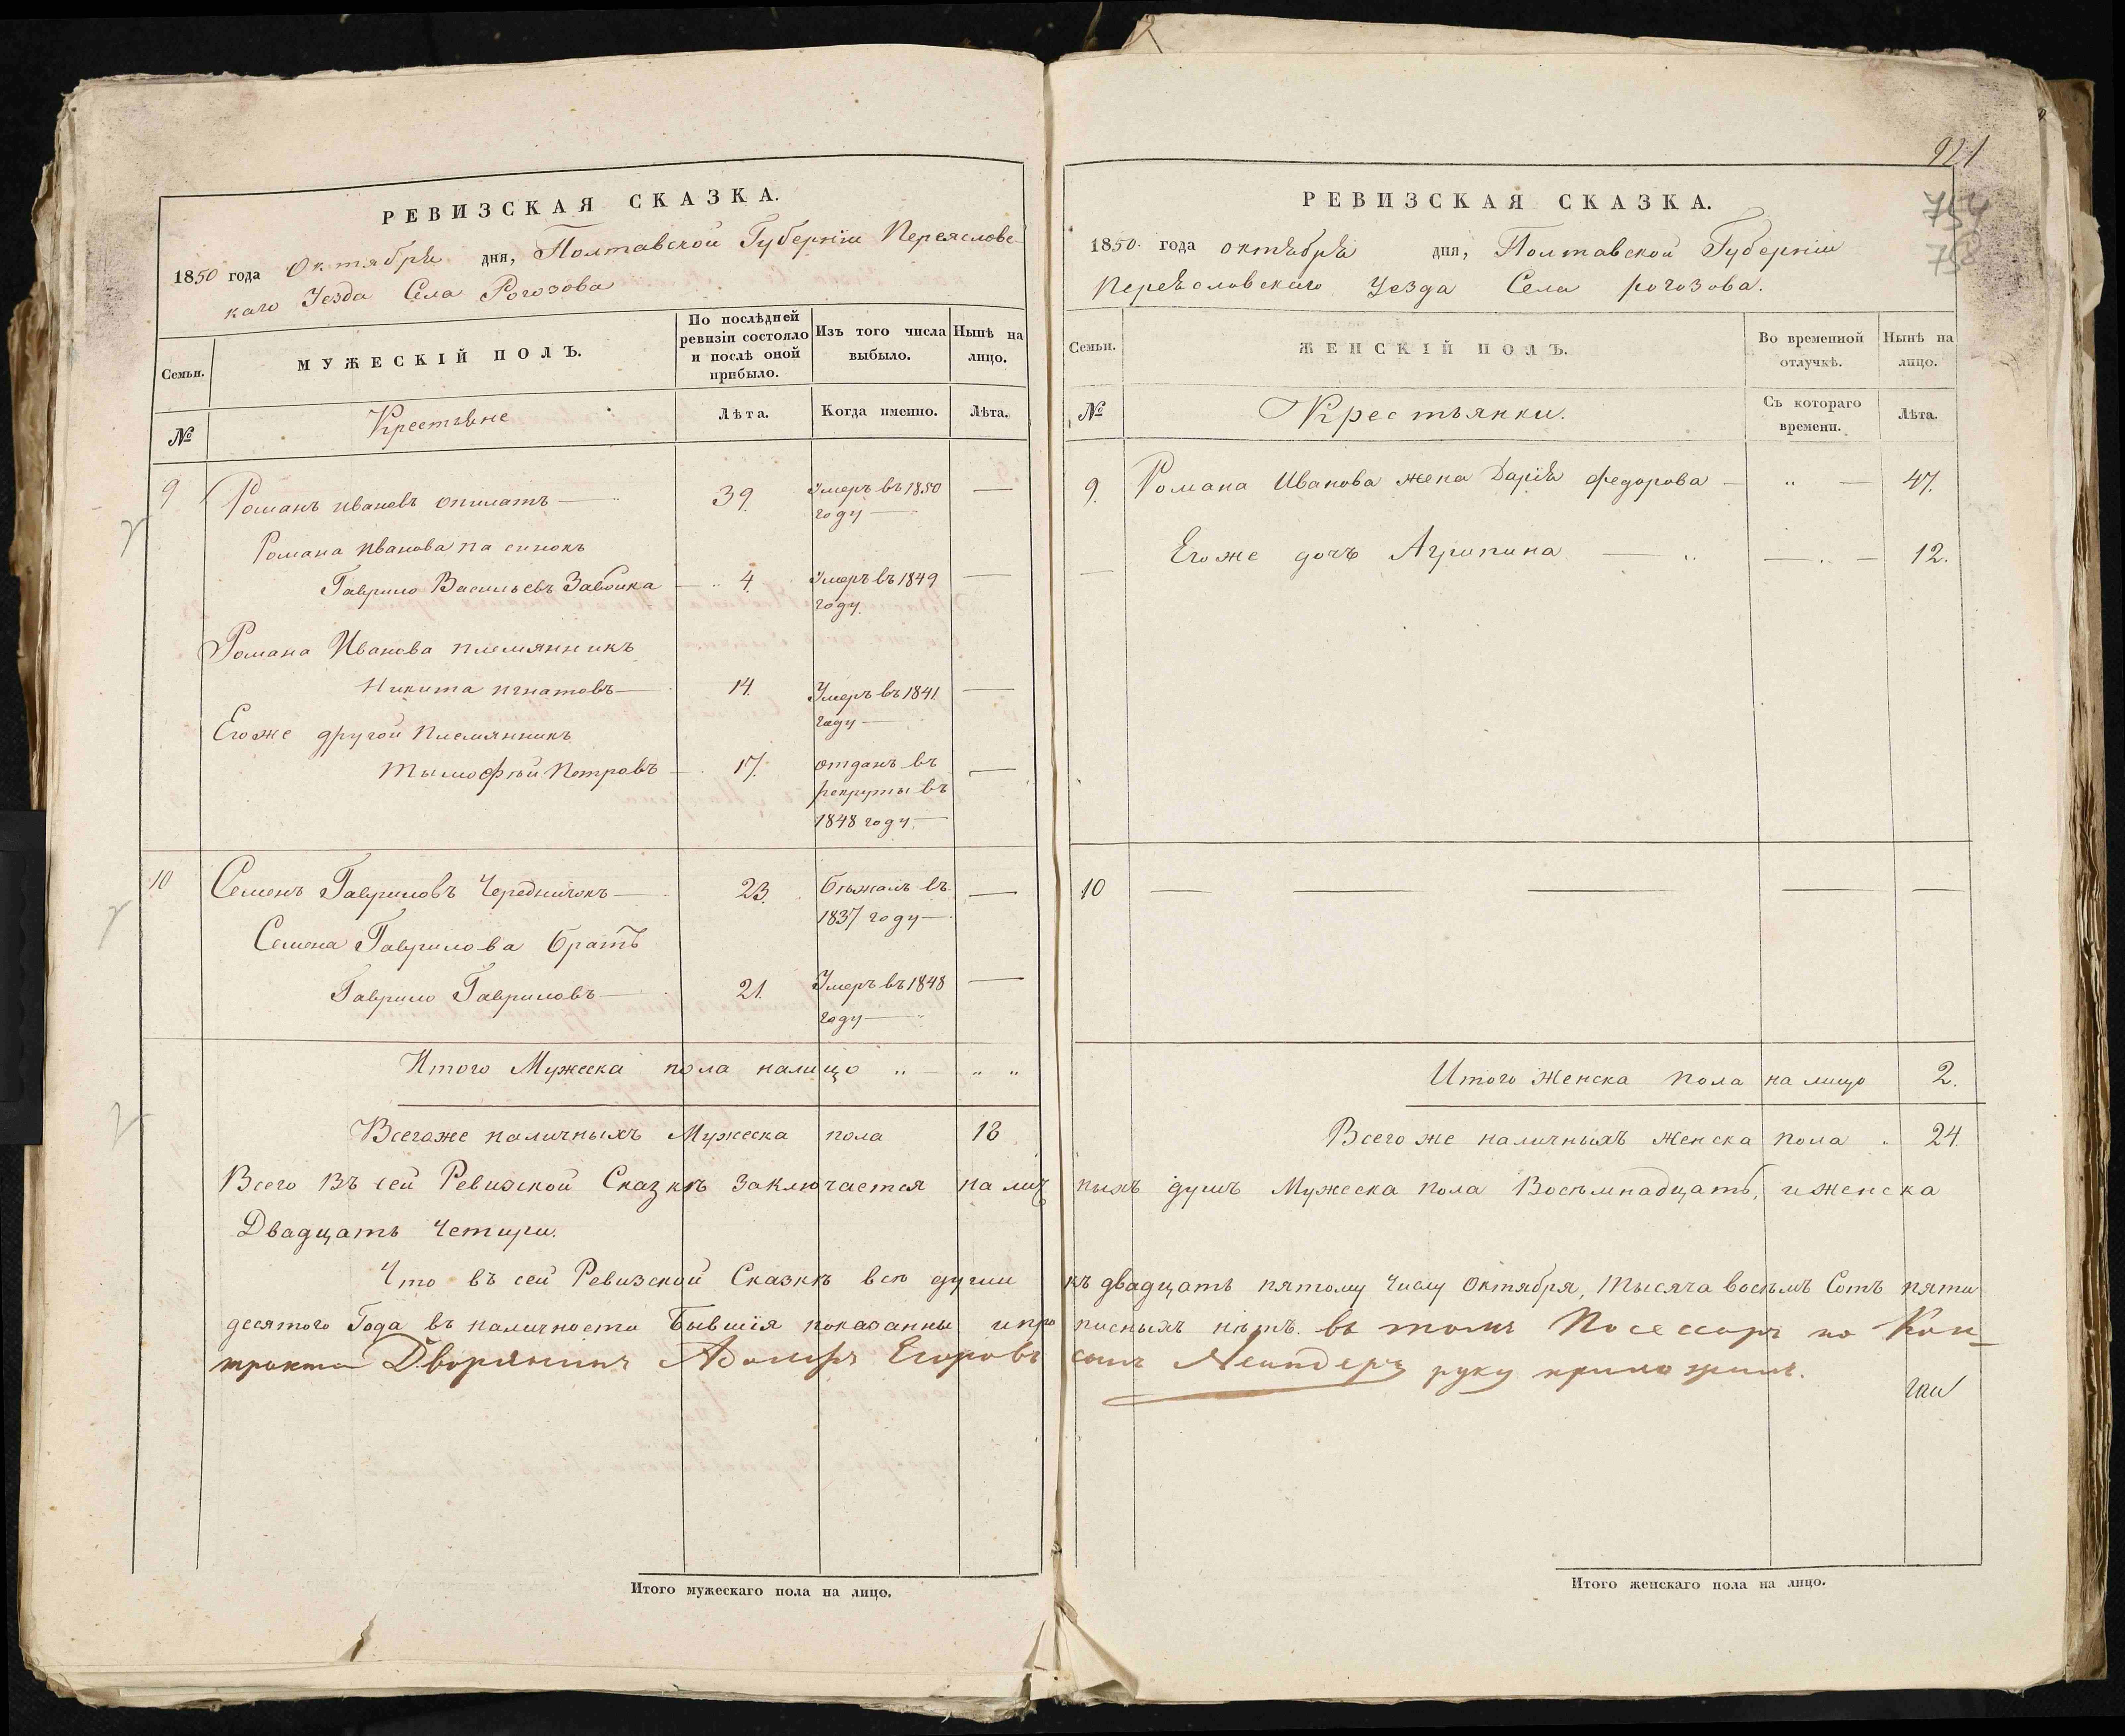 РЕВИЗСКАЯ СКАЗКА.
1850 года Октября дня, Полтавской Губерніи Переяславс-
каго Уезда Села Рогозова
Семьи.
МУЖЕСКІЙ ПОЛЪ.
По послѣдней ревизіи состояло и послѣ оной прибыло.
Изъ того числа выбыло.
Нынѣ на лицо.
№
Крестьяне
Лѣта.
Когда именно.
Лѣта.
9 Романъ Ивановъ — 39. Умеръ въ 1850
году —
Романа Иванова па синокъ
Гаврило Васильевъ Забоика — 4. Умеръ въ 1849 —
году.
Романа Иванова племянникъ
Никита Игнатовъ — 14. Умеръ въ 1841. —
году —
Егоже другой племянникъ
Тымофѣй Петровъ — 17. отданъ въ —
рекруты въ
1848 году. —
10 Семенъ Гавриловъ Чередничокъ — 23. бѣжалъ въ —
1837 году —
Семена Гаврилова братъ
Гаврило Гавриловъ — 21. Умеръ въ 1848 —
году —
Итого Мужеска пола налицо „ — „ „
Всегоже наличныхъ Мужеска пола 18
Всего Въ сей Ревизской Сказкѣ заключается налич
Двадцать Четири.
Что въ сей Ревизской Сказкѣ всѣ души
десятого Года въ наличности бывшія показанны и про
тракта Дворянинъ Адольфъ Егоровъ
Итого мужескаго пола на лицо.
921
754
758
РЕВИЗСКАЯ СКАЗКА.
1850 года октября дня, Полтавской Губерніи
Переясловскаго Уезда Села рогозова.
Семьи.
ЖЕНСКІЙ ПОЛЪ.
Во временной отлучкѣ.
Нынѣ на лицо.
№
Крестьянки.
Съ котораго времени.
Лѣта.
9. Романа Иванова жена Дарія федорова — „ — 47.
— Егоже дочъ Агрипина — „ — . — 12.
10 — — — — —
Итого женска пола на лицо 2.
Всегоже наличныхъ женска пола . 24.
ныхъ душъ Мужеска пола Восѣмнадцать, и женска
къ двадцать пятому числу октября, тысяча восѣмъ Сотъ пяти
писныхъ нѣтъ. въ томъ Посессоръ по Кон-
сынъ руку приложилъ.
Итого женскаго пола на лицо.